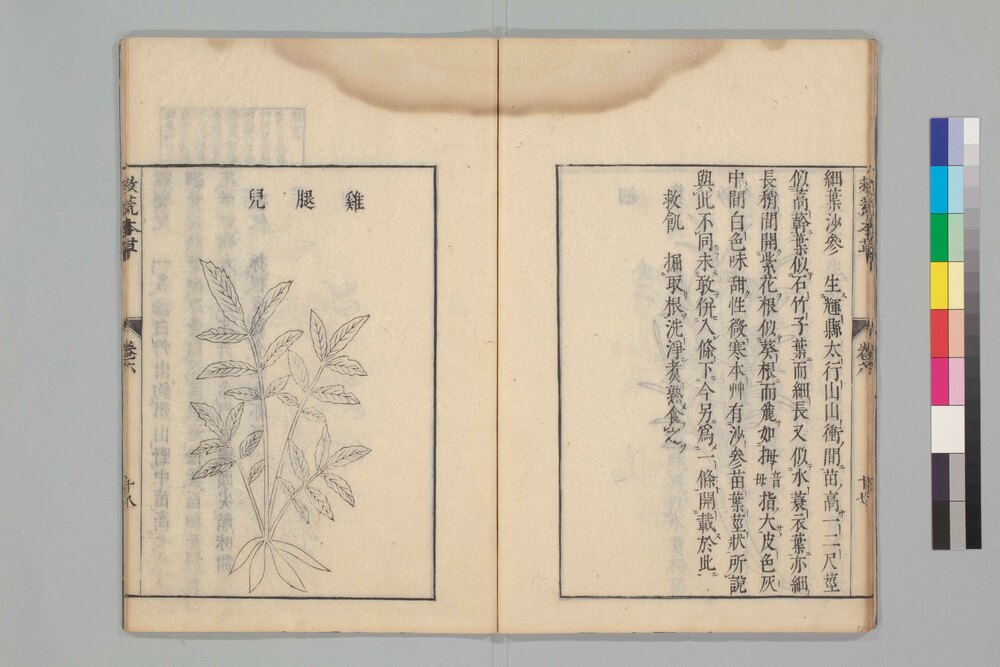 細葉沙參 生輝縣太行山山衝間苗高一二尺莖
似蒿幹葉似石竹子葉而細長又似水蓑衣葉亦細
長稍間開紫花根似葵根而麄如拇音母指大皮色灰
中間白色味甜性微寒本艸有沙參苗葉莖狀所說
與此不同未敢併入條下今另爲一條開載於此
救飢 掘取根洗淨煮熟食之
救荒本草
卷六
廿七
雞腿兒
救荒本草
卷六
廿八